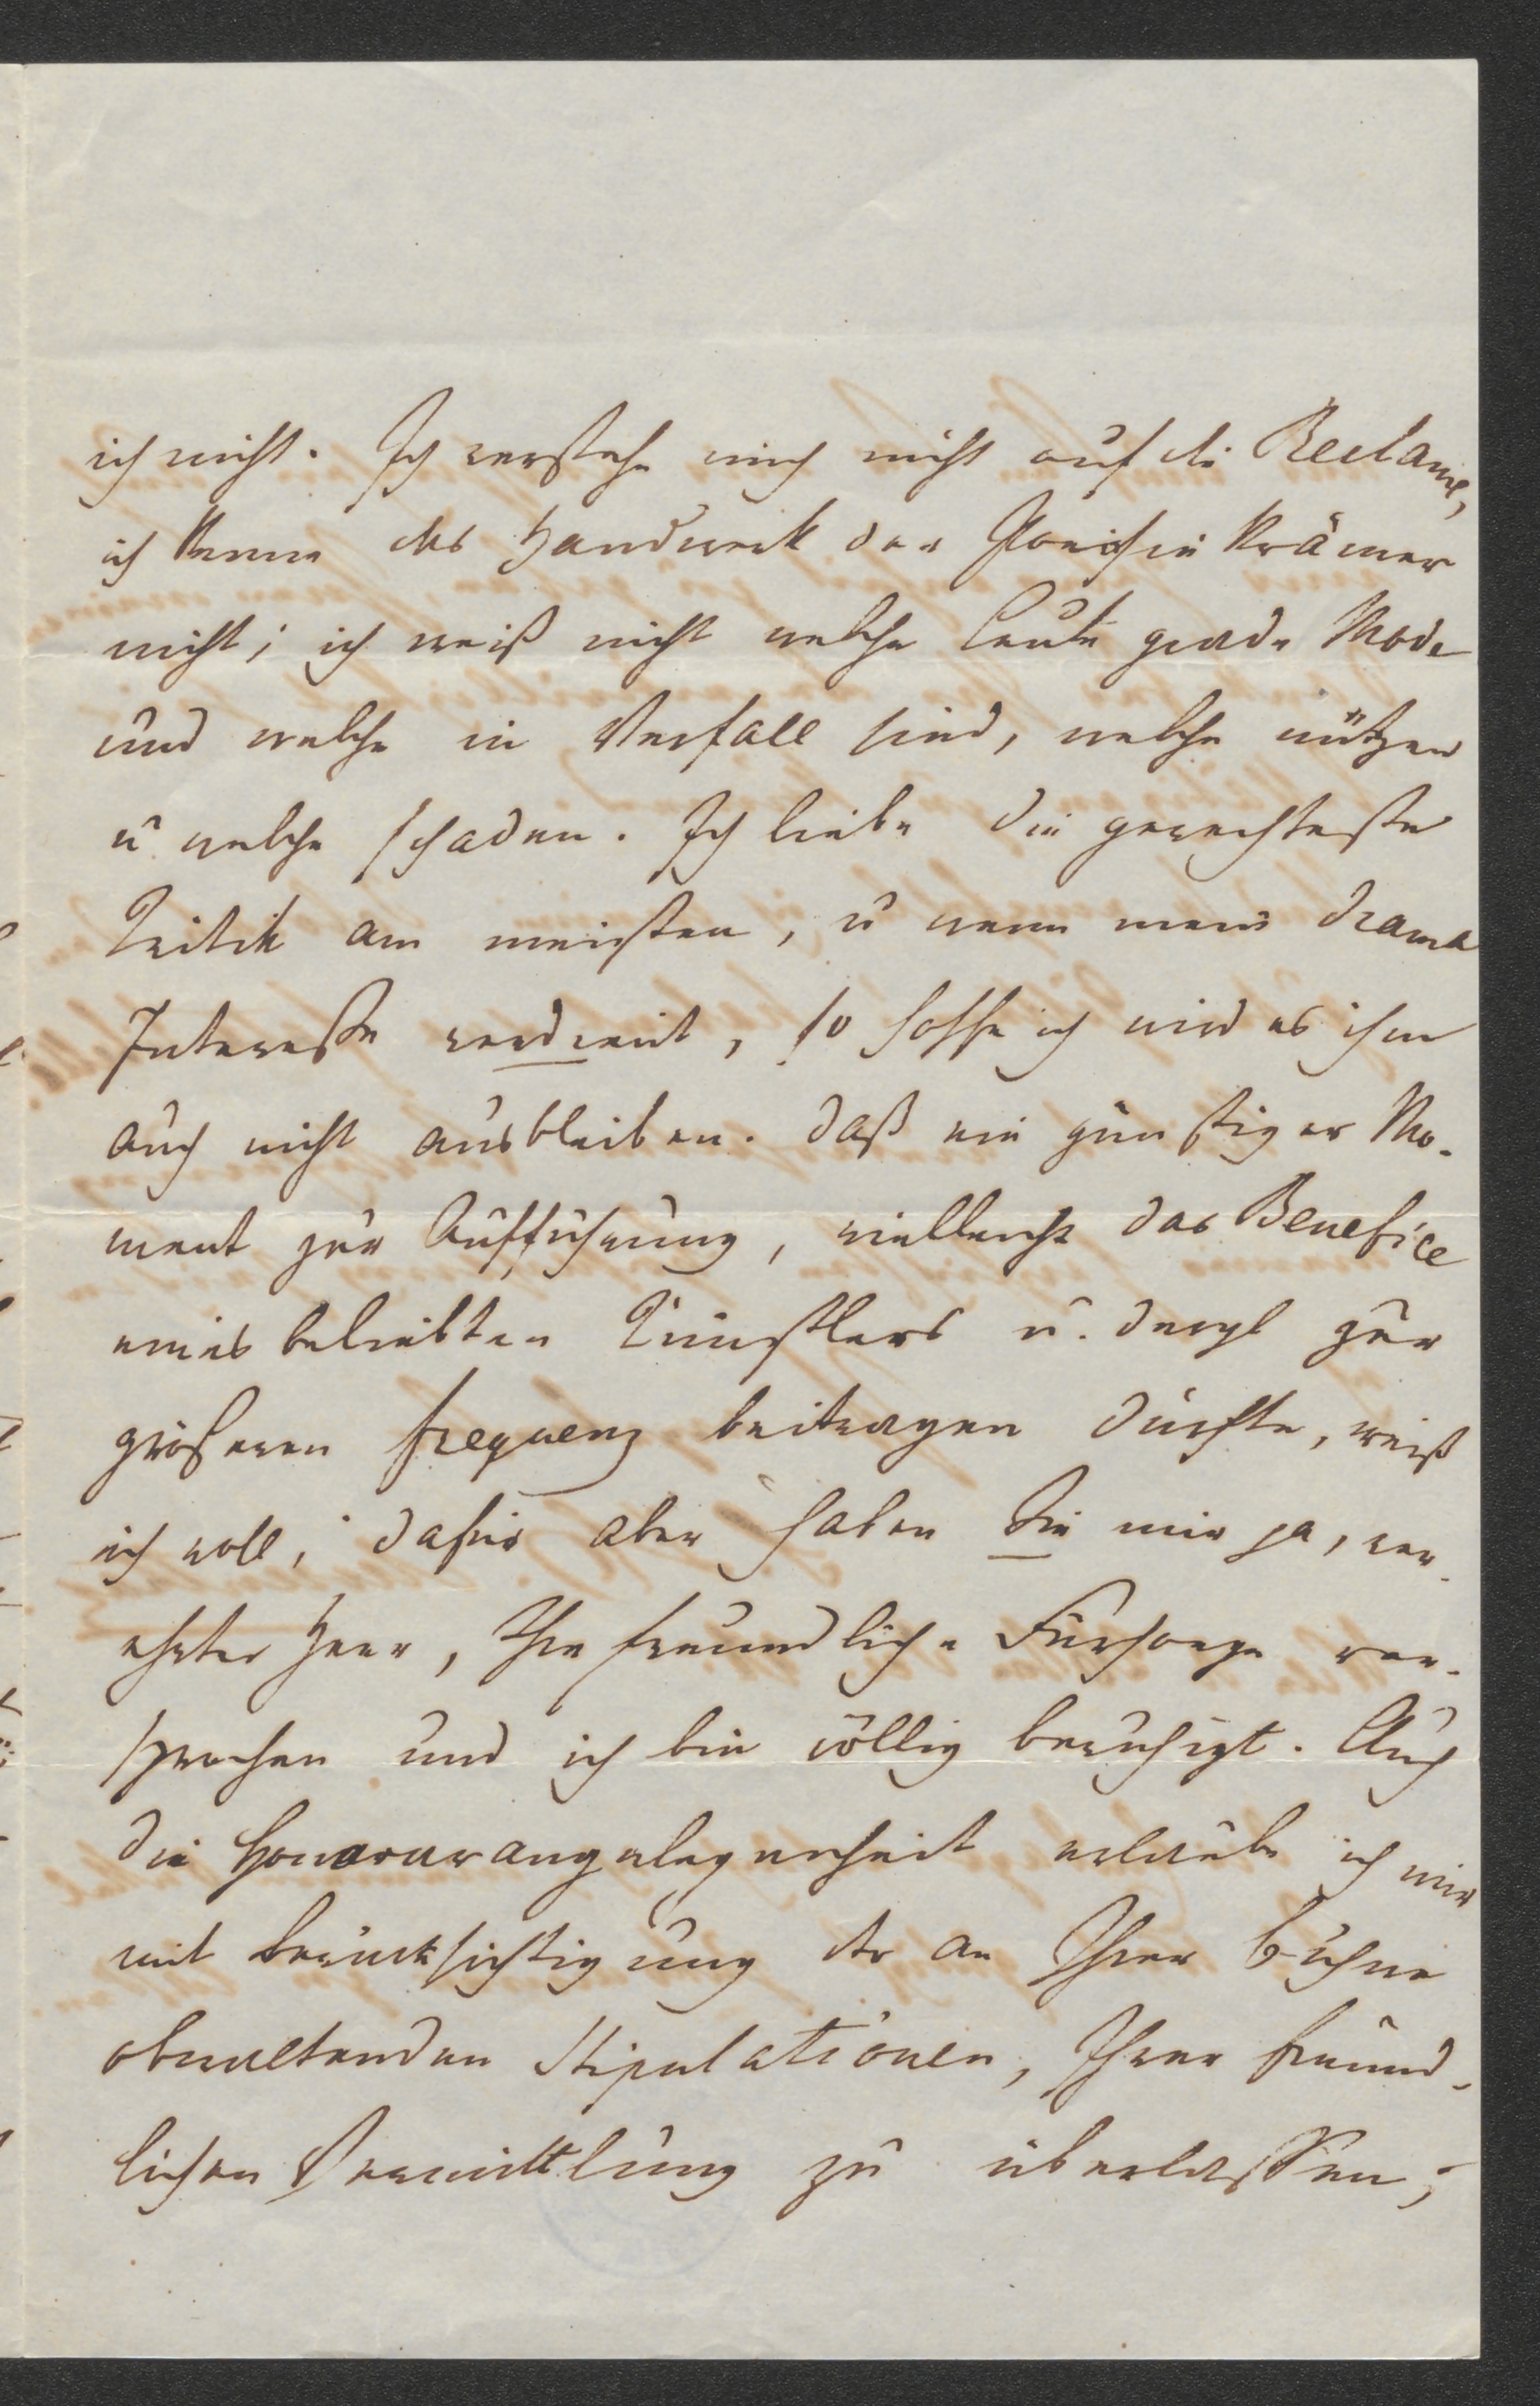 ich nicht. Ich verstehe mich nicht auf die Reclame,
ich kenne das Handwerk der Poesiekrämer
nicht; ich weiß nicht welche Leute grade Mode
und welche in Verfall sind, welche nützen
u welche schaden. Ich liebe die gerechteste
Kritik am meisten, u wenn mein Drama
Interesse verdient, so hoffe ich wird es ihm
auch nicht ausbleiben. Daß ein günstiger Mo-
ment zur Aufführung, vielleicht das Benefice
eines beliebten Künstlers u. dergl zur
größeren Frequenz beitragen dürfte, weiß
ich woll; dafür aber haben Sie mir ja, ver-
ehrter Herr, Ihre freundliche Fürsorge ver-
sprochen und ich bin völlig beruhigt. Auch
die Honorarangelegenheit erlaube ich mir
mit Berücksichtigung der an Ihrer Bühne
obwaltenden Stipulationen, Ihrer freund-
lichen Vermittlung zu überlassen;